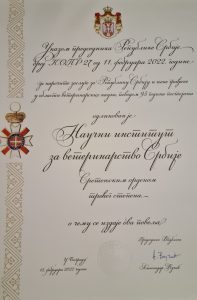 Указом председника Републике Србије
број КОПР 27 од 11. фебруара 2022. године
за нарочите заслуге за Републику Србију и њене грађане
у области ветеринарске науке поводом 95 година постојања
одликован је
Научни институт
за ветеринарство Србије
Сретењским орденом
трећег степена
о чему се издаје ова повеља.
Председник Републике
У Београду
15. фебруара 2022. године
Александар Вучић